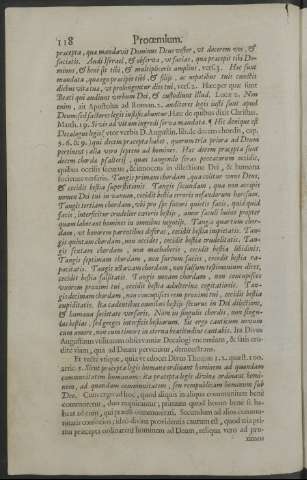 118 Proœmium.
præcepta, quæ mandavit Dominus Deus vester, vt docerem vos, &
faciatis. Audi Israel, & observa, vt facias, quæ præcepit tibi Do-
minus, & bene sit tibi, & multipliceris amplius, vers. 3. Hæc sunt
mandata, quæ ego præcipio tibi, & filijs, ac nepotibus tuis cunctis
diebus vitæ tuæ, vt prolongentur dies tui, vers. 2. Hæc per ipsæ sunt
Beati qui audiunt verbum Dei, & custodiunt illud. Lucæ 2. Non
enim, ait Apostolus ad Roman. 2. auditores legis iusti sunt apud
Deum: sed factores legis iustificabuntur. Hæc de quibus dixit Christus.
Matth. 19. Si vis ad vitam ingredi serva mandata. Hic denique est
Decalogus legis, vtor verbis D. Augustin. lib. de decem chordis, cap.
5. 6. & 9. qui decem præcepta habet, quorum tria priora ad Deum
pertinent: alia vero septem ad homines. Hæc decem præcepta sunt
decem chorda psalterij, quas tangendo feras peccatorum occidit,
quibus occisis securus, & innocens in dilectione Dei, & humana
societate versaris. Tangis primam chordam, qua colitur vnus Deus,
& cecidit bestia superstitionis. Tangis secundam, qua non accipis
nomen Dei tui in vanum, cecidit bestia erroris nefandarum hæresum.
Tangis tertiam chordam, vbi pro spe futuræ quietis facis, quidquid
facis, interficitur crudelior cæteris bestijs, amor sæculi huius propter
quam laborant homines in omnibus negotijs. Tangis quartam chor-
dam, vt honorem parentibus deferas, cecidit bestia impietatis. Tan-
gis quintam chordam, non occides, cecidit bestia crudelitatis. Tan-
gis sextam chordam, non mæchaberis, cecidit bestia libidinis.
Tangis septimam chordam, non furtum facies, cecidit bestia ra-
pacitatis. Tangis octavam chordam, non falsum testimonium dices,
cecidit bestia falsitatis. Tangis nonam chordam, non concupisces
vxorem proximi tui, cecidit bestia adulterinæ cogitationis. Tan-
gis decimam chordam, non concupisces rem proximi tui, cecidit bestia
cupiditatis. Ita cadentibus cunctis bestijs securus in Dei dilectione,
& humana societate versaris. Nam in singulis chordis, non singu-
las bestias, sed greges interficis bestiarum. Sic ergo canticum novum
cum amore, non cum timore in æterna beatitudinis cantabis. Ita Divus
Augustinus vtilitatem observantiæ Decalogi encomians, & suis eru-
dite viam, qua ad Deum pervenitur, demonstrans.
Et recte vtique, quia vt edocet Divus Thomas 1. 2. quæst. 100.
artic. 5. Sicut præcepta legis humanæ ordinant hominem ad quandam
communitatem humanam: ita præcepta legis divinæ ordinant homi-
nem, ad quandam communitatem, seu rempublicam hominum sub
Deo. Cum ergo ad hoc, quod aliquis in aliqua communitate bene
commoretur, duo requirantur, primum quod homo bene se ha-
beat ad eum, qui præest communitati. Secundum ad alios commu-
nitatis consocios, ideo divina providentia cautum est, quod tria pri-
ma præcepta ordinarent hominem ad Deum, reliqua vero ad pro-
ximos